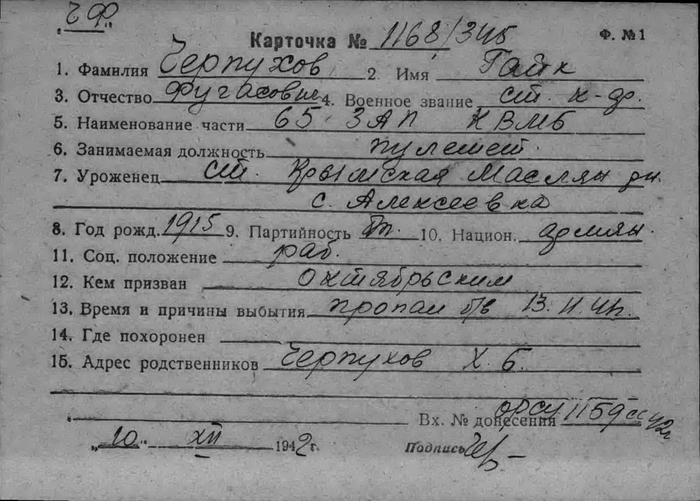 ЧФ
Карточка № 1168/345 Ф. №1
1. Фамилия Черпухов 2. Имя Гайк
3. Отчество Фугасовие 4. Военное звание ст. к-др.
5. Наименование части 65 ЗАП КВМБ
6. Занимаемая должность пулемет.
7. Уроженец ст. Крымская
с. Алексеевка
8. Год рожд. 1915 9. Партийность 10. Национ. армян.
11. Соц. положение раб.
12. Кем призван октябрьским
13. Время и причины выбытия пропал б/в 13.
14. Где похоронен
15. Адрес родственников Черпухов Х. Б.
Вх. № донесения 1159сс 42г
"10" XII 1942г. Подпись